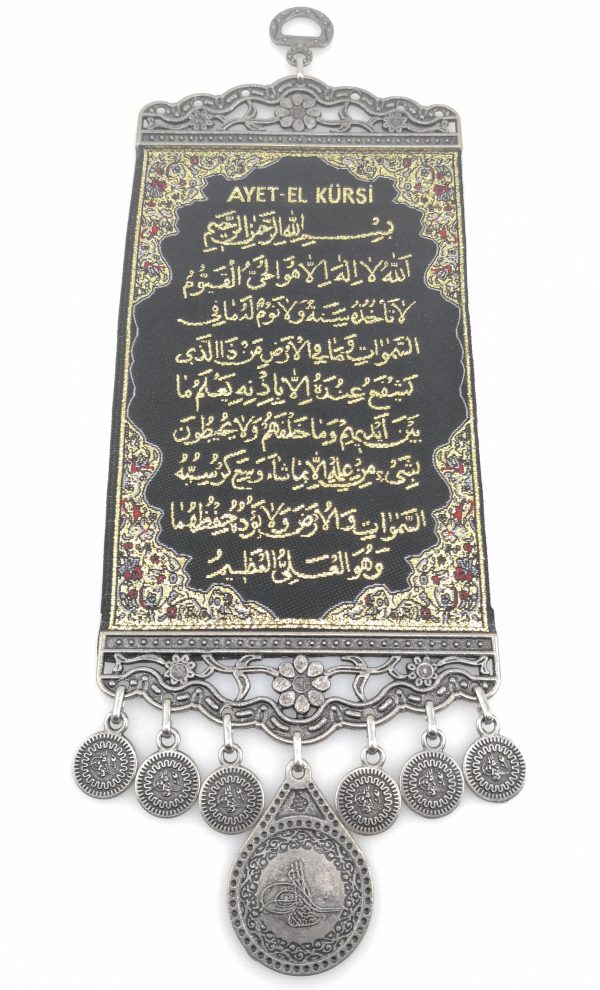 AYET-EL KÜRSİ
بسم الله الرحمن الرحيم
الله لا اله الا هو الحي القيوم
لا تأخذه سنة ولا نوم له ما في
السموات وما في الارض من ذا الذي
يشفع عنده الا باذنه يعلم ما
بين ايديهم وما خلفهم ولا يحيطون
بشيء من علمه الا بما شاء وسع كرسيه
السموات والارض ولا يؤده حفظهما
وهو العلي العظيم